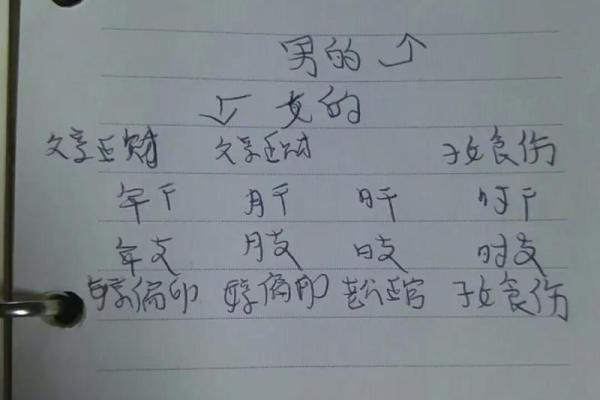 男的
女的
父亲正财 父亲正财 子女食伤
年干 月干 日干 时干
年支 月支 日支 时支
母亲偏印 母亲偏印 老公正官 子女食伤